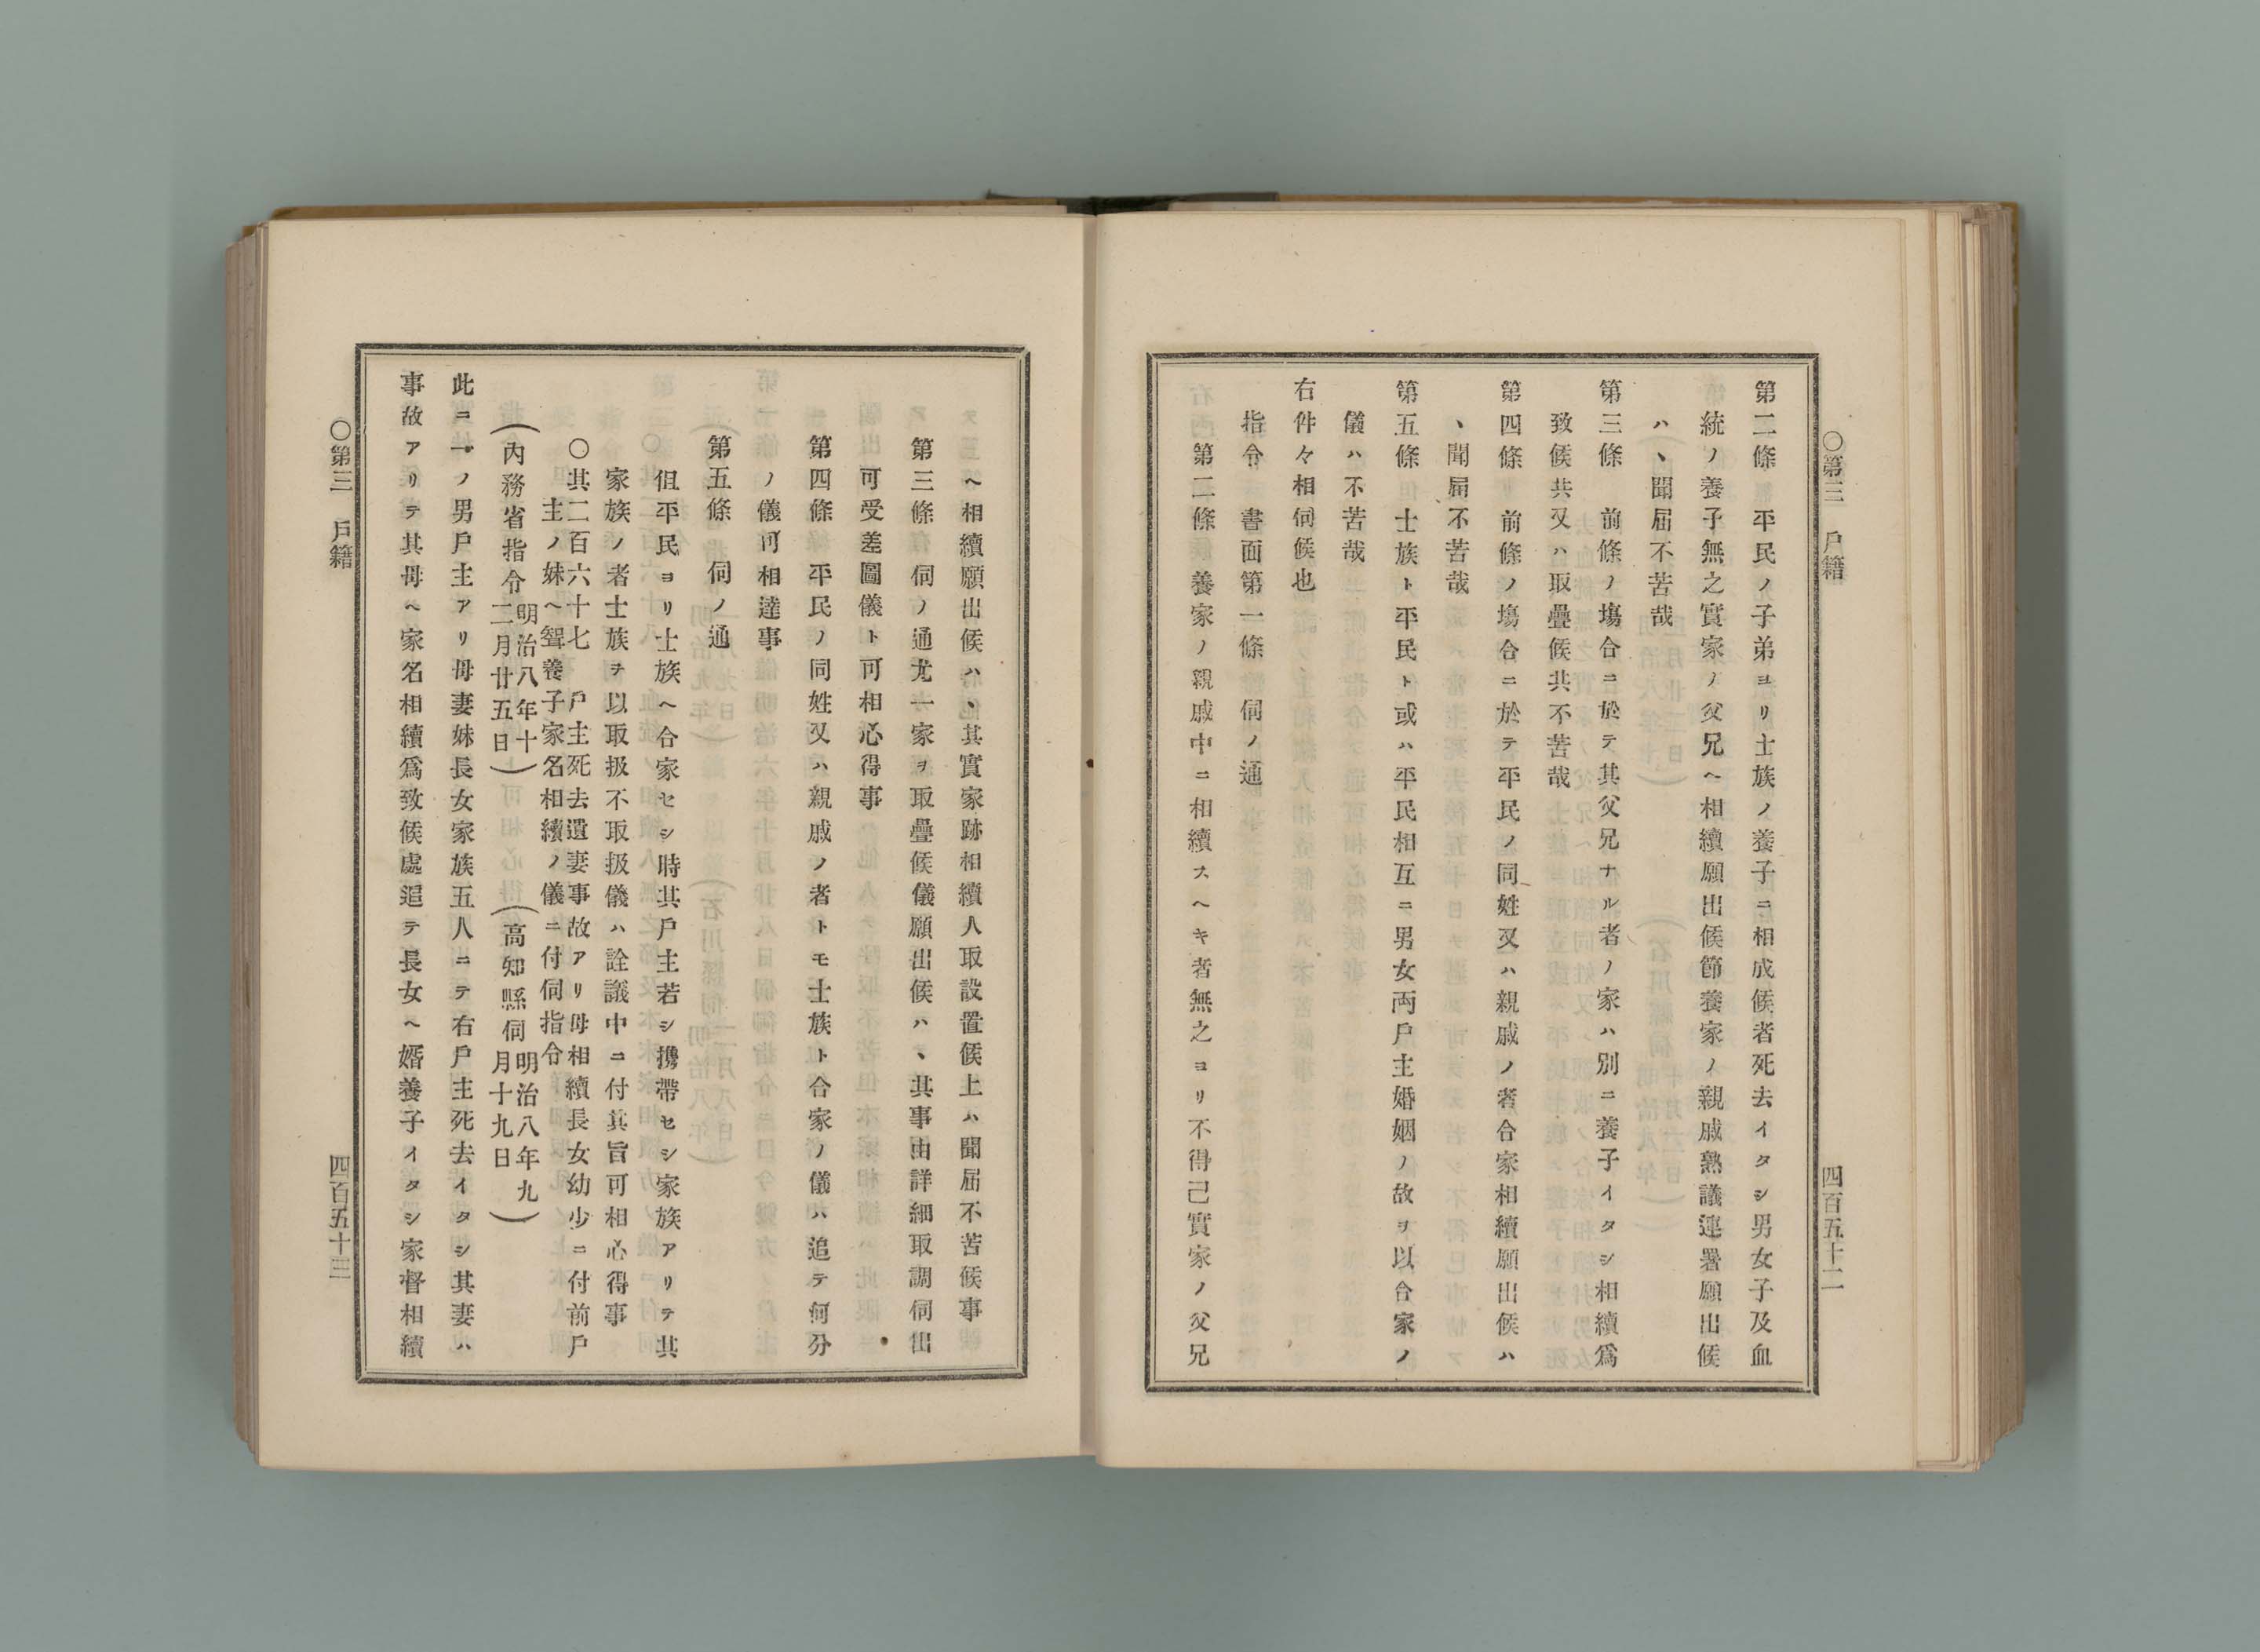 ○第三　戸籍
四百五十二
第二條　平民ノ子弟ヨリ士族ノ養子ニ相成候者死去イタシ男女子及血
統ノ養子無之實家ノ父兄ヘ相續願出候節養家ノ親戚熟議連署願出候
ハヽ聞届不苦哉
第三條　前條ノ塲合ニ於テ其父兄ナル者ノ家ハ別ニ養子イタシ相續爲
致候共又ハ取疊候共不苦哉
第四條　前條ノ塲合ニ於テ平民ノ同姓又ハ親戚ノ者合家相續願出候ハ
ヽ聞届不苦哉
第五條　士族ト平民ト或ハ平民相互ニ男女両戸主婚姻ノ故ヲ以合家ノ
儀ハ不苦哉
右件々相伺候也
指令　書面第一條　伺ノ通
第二條　養家ノ親戚中ニ相續スヘキ者無之ヨリ不得己實家ノ父兄
ヘ相續願出候ハヽ其實家跡相續人取設置候上ハ聞届不苦候事
第三條　伺ノ通尤一家ヲ取疊候儀願出候ハヽ其事由詳細取調伺出
可受差圖儀ト可相心得事
第四條　平民ノ同姓又ハ親戚ノ者トモ士族ト合家ノ儀ハ追テ何分
ノ儀可相達事
第五條　伺ノ通
但平民ヨリ士族ヘ合家セシ時其戸主若シ携帶セシ家族アリテ其
家族ノ者士族ヲ以取扱不取扱儀ハ詮議中ニ付其旨可相心得事
○其二百六十七　戸主死去遺妻事故アリ母相續長女幼少ニ付前戸
主ノ妹ヘ聟養子家名相續ノ儀ニ付伺指令
（内務省指令明治八年十二月廿五日）　（高知縣伺明治八年九月十九日）
此ニ一ノ男戸主アリ母妻妹長女家族五人ニテ右戸主死去イタシ其妻ハ
事故アリテ其母ヘ家名相續爲致候處追テ長女ヘ婿養子イタシ家督相續
○第三　戸籍
四百五十三